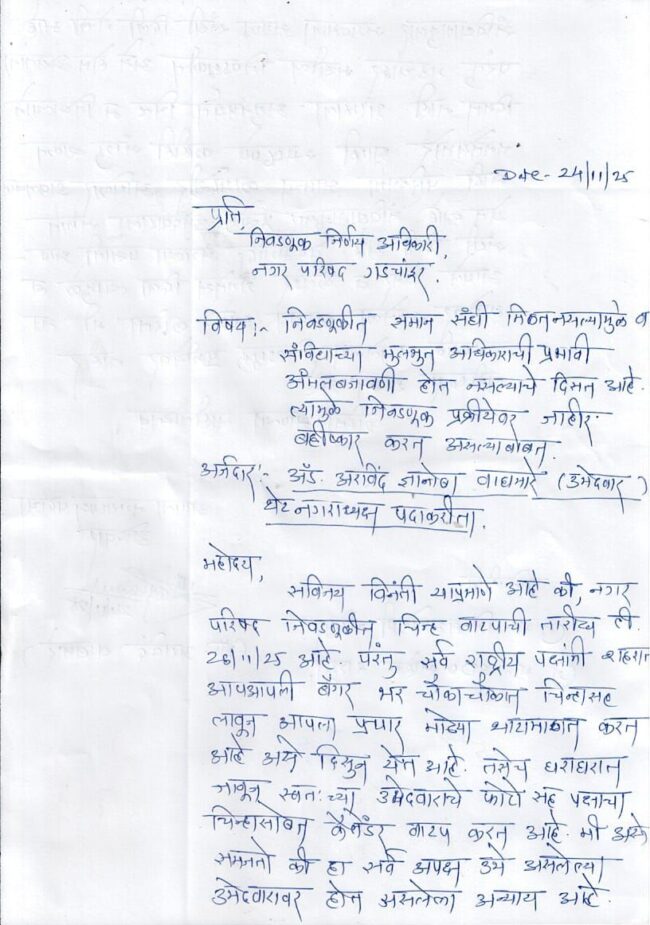 Date - 24/11/25
प्रति,
निवडणूक निर्णय अधिकारी,
नगर परिषद गडचांदूर.
विषय :- निवडणूकीत समान संधी मिळत नसल्यामुळे व
संविधाच्या मुलभुत अधिकाराची प्रभावी
अंमलबजावणी होत नसल्याचे दिसत आहे.
त्यामुळे निवडणूक प्रक्रीयेवर जाहीर
बहीष्कार करत असल्याबाबत.
अर्जदार :- अॅड. अरविंद ज्ञानोबा वाघमारे (उमेदवार)
थेट नगराध्यक्ष पदाकरीता.
महोदय,
सविनय विनंती याप्रमाणे आहे की, नगर
परिषद निवडणूकीत चिन्ह वाटपाची तारीख ही.
26/11/25 आहे परंतु सर्व राष्ट्रीय पक्षांनी शहरात
आपआपली बॅनर भर चौकाचौकात चिन्हासह
लावून आपला प्रचार मोठ्या थाटामाटात करत
आहे असे दिसुन येत आहे. तसेच घराघरात
जावून स्वतःच्या उमेदवाराचे फोटो सह पक्षाचा
चिन्हासोबत कॅलेंडर वाटप करत आहे. मी असे
समजतो की हा सर्व अपक्ष उभे असलेल्या
उमेदवारावर होत असलेला अन्याय आहे.